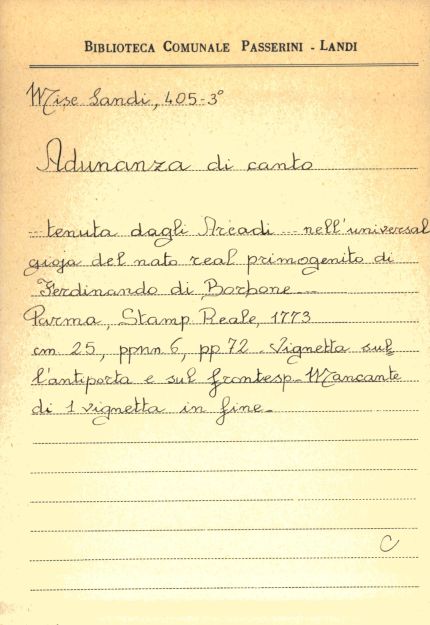 BIBLIOTECA COMUNALE PASSERINI - LANDI
Misc Landi, 405-3°
Adunanza di canto
... tenuta dagli Arcadi ... nell'universal
gioja del nato real primogenito di
Ferdinando di Borbone ...
Parma, Stamp Reale, 1773
cm 25, ppnn 6, pp 72 - Vignetta sul
l'antiporta e sul frontesp - Mancante
di 1 vignetta in fine -
C